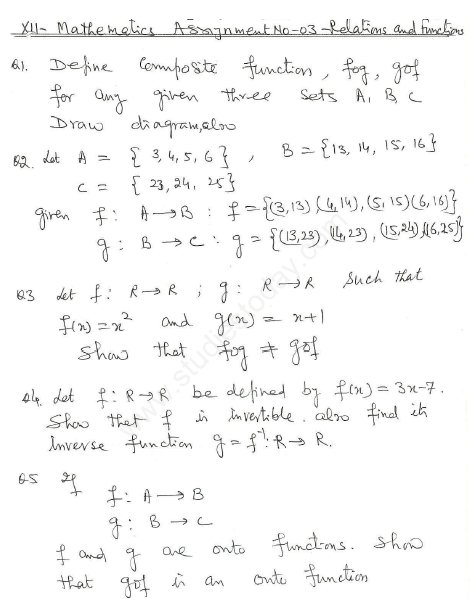 XII- Mathematics Assignment No-03-Relations and Functions
Q1. Define Composite function, fog, gof
for any given three sets A, B, C
Draw diagram, also
Q2. Let A = { 3, 4, 5, 6 } , B = {13, 14, 15, 16}
C = { 23, 24, 25}
given f: A→B : f = {(3,13) (4,14), (5,15) (6,16)}
g: B→C : g = {(13,23), (14,23), (15,24) (16,25)}
Q3 Let f: R→R ; g: R→R such that
f(x) = x² and g(x) = x+1
Show that fog ≠ gof
Q4. Let f: R→R be defined by f(x) = 3x-7.
Show that f is invertible. also find its
inverse function g = f⁻¹: R→R.
Q5 If
f: A→B
g: B→C
f and g are onto functions. Show
that gof is an onto function
www.studiestoday.com